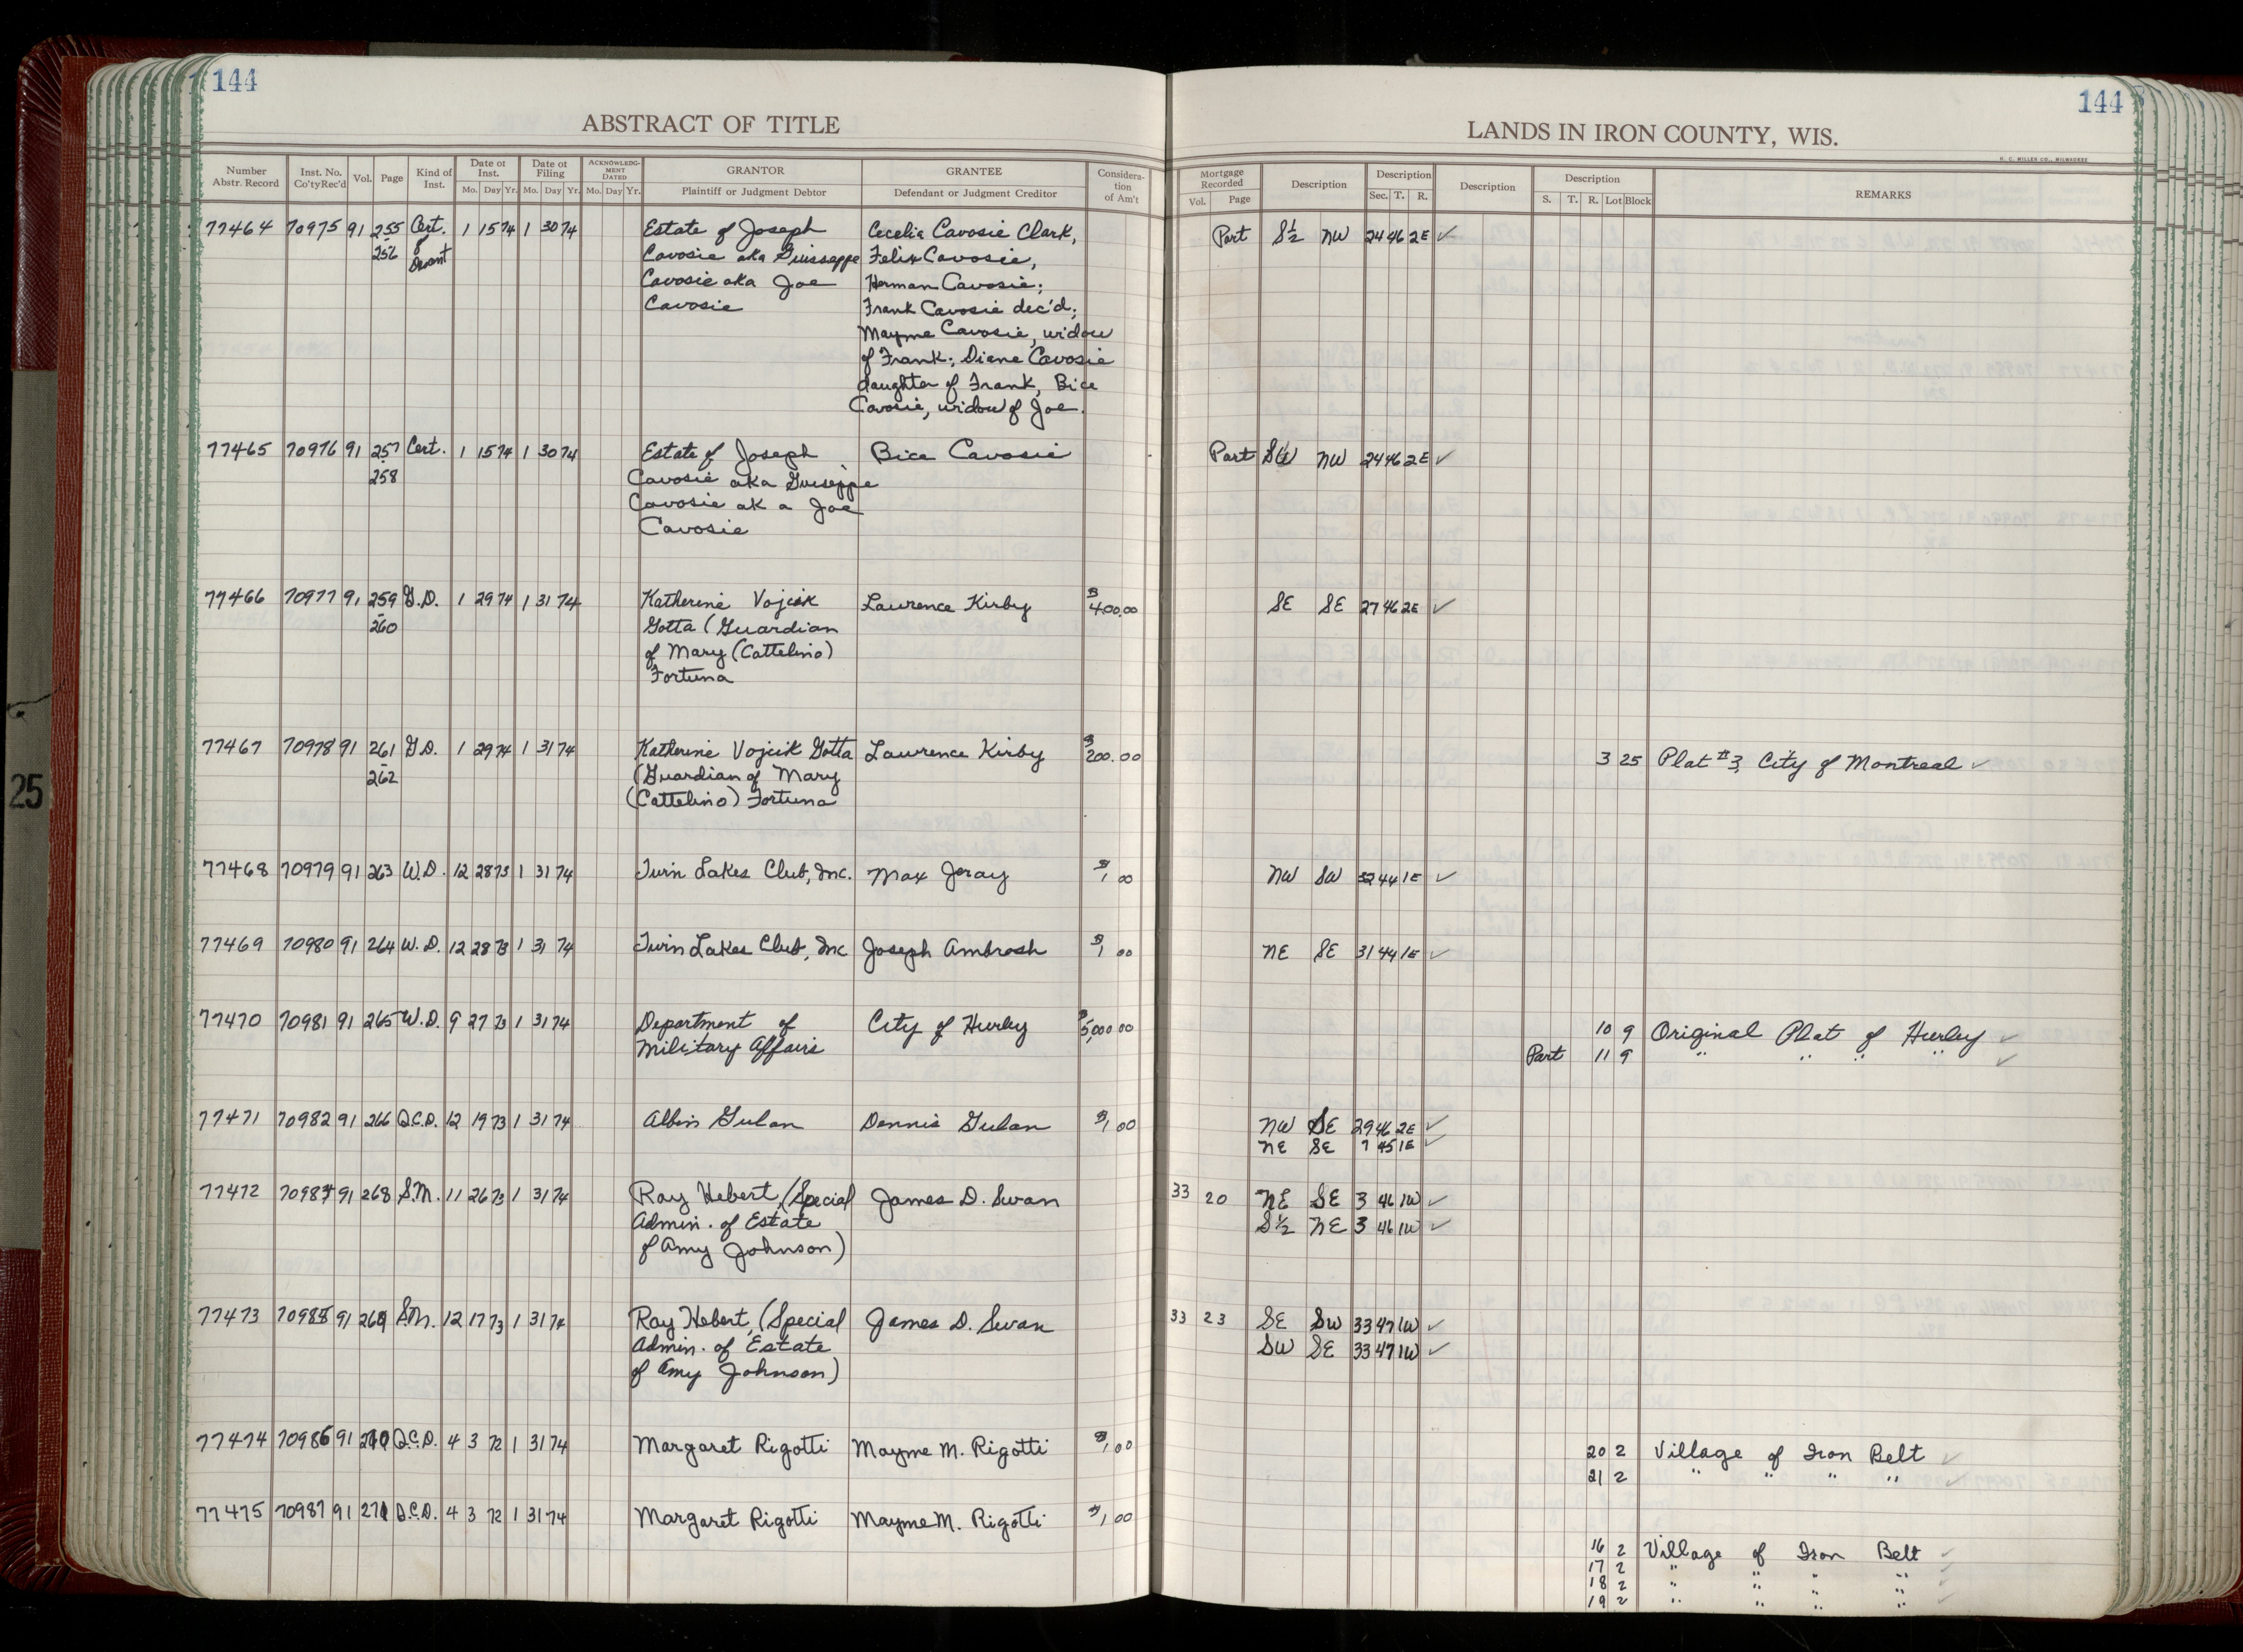 144
144
ABSTRACT OF TITLE
LANDS IN IRON COUNTY, WIS.
H. C. MILLER CO., MILWAUKEE
Number Abstr. Record | Inst. No. Co'ty Rec'd | Vol. | Page | Kind of Inst. | Date of Inst. Mo. Day Yr. | Date of Filing Mo. Day Yr. | ACKNOWLEDGMENT DATED Mo. Day Yr. | GRANTOR Plaintiff or Judgment Debtor | GRANTEE Defendant or Judgment Creditor | Consideration of Am't | Mortgage Recorded Vol. Page | Description | Description Sec. T. R. | Description | Description S. T. R. Lot Block | REMARKS
77464 70975 91 255 Cert. 1 15 74 1 30 74 Estate of Joseph Cecelia Cavosie Clark, Part S½ NW 24 46 2E ✓
256 of Descent Cavosie aka Guisseppe Felix Cavosie,
Cavosie aka Joe Herman Cavosie;
Cavosie Frank Cavosie dec'd;
Mayme Cavosie, widow
of Frank; Diane Cavosie
daughter of Frank, Bice
Cavosie, widow of Joe.
77465 70976 91 257 Cert. 1 15 74 1 30 74 Estate of Joseph Bice Cavosie Part S½ NW 24 46 2E ✓
258 Cavosie aka Guiseppe
Cavosie aka Joe
Cavosie
77466 70977 91 259 G.D. 1 29 74 1 31 74 Katherine Vojcik Laurence Kirby $400.00 SE SE 27 46 2E ✓
260 Gotta (Guardian
of Mary (Cattelino)
Fortuna
77467 70978 91 261 G.D. 1 29 74 1 31 74 Katherine Vojcik Gotta Lawrence Kirby $200.00 3 25 Plat #3, City of Montreal ✓
262 (Guardian of Mary
(Cattelino) Fortuna
77468 70979 91 263 W.D. 12 28 73 1 31 74 Twin Lakes Club, Inc. Max Jeray $1 00 NW SW 32 44 1E ✓
77469 70980 91 264 W.D. 12 28 73 1 31 74 Twin Lakes Club, Inc Joseph Ambrosh $1 00 NE SE 31 44 1E ✓
77470 70981 91 265 W.D. 9 27 73 1 31 74 Department of City of Hurley $5,000 00 10 9 Original Plat of Hurley ✓
Military Affairs Part 11 9 " " " " ✓
77471 70982 91 266 Q.C.D. 12 19 73 1 31 74 Albin Gulan Dennis Gulan $1 00 NW SE 29 46 2E ✓
NE SE 7 45 1E ✓
77472 70984 91 268 S.M. 11 26 73 1 31 74 Ray Hebert, (Special James D. Swan 33 20 NE SE 3 46 1W ✓
Admin. of Estate S½ NE 3 46 1W ✓
of Amy Johnson)
77473 70985 91 269 S.M. 12 17 73 1 31 74 Ray Hebert, (Special James D. Swan 33 23 SE SW 33 47 1W ✓
Admin. of Estate SW SE 33 47 1W ✓
of Amy Johnson)
77474 70986 91 270 Q.C.D. 4 3 72 1 31 74 Margaret Rigotti Mayme M. Rigotti $1 00 20 2 Village of Iron Belt ✓
21 2 " " " " ✓
77475 70987 91 271 Q.C.D. 4 3 72 1 31 74 Margaret Rigotti Mayme M. Rigotti $1 00
16 2 Village of Iron Belt ✓
17 2 " " " " ✓
18 2 " " " " ✓
19 2 " " " " ✓
25